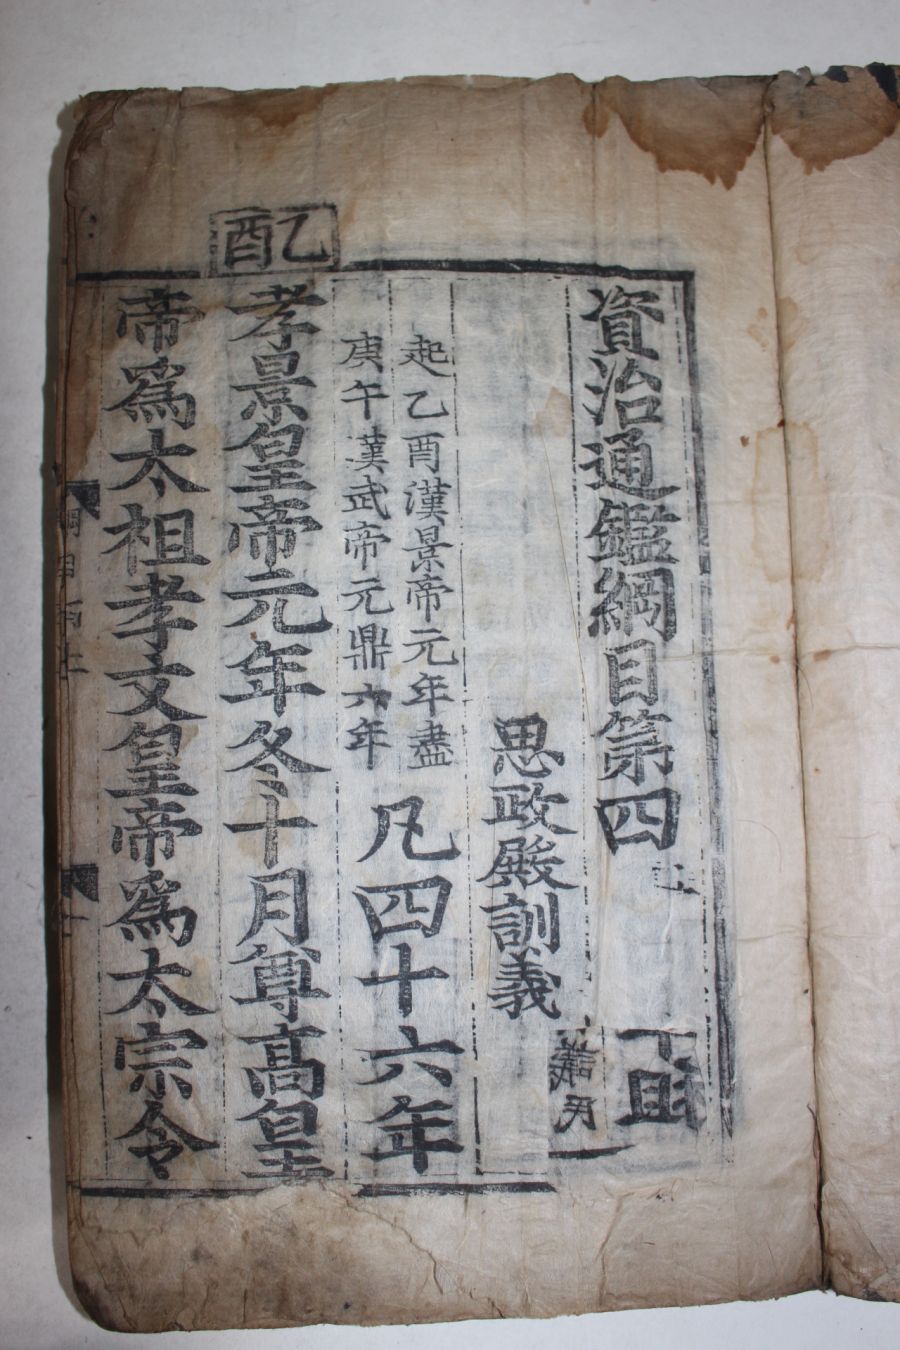 資治通鑑綱目第四
思政殿訓義
起乙酉漢景帝元年盡
庚午漢武帝元鼎六年
凡四十六年
乙酉
孝景皇帝元年冬十月尊高皇
帝爲太祖孝文皇帝爲太宗令